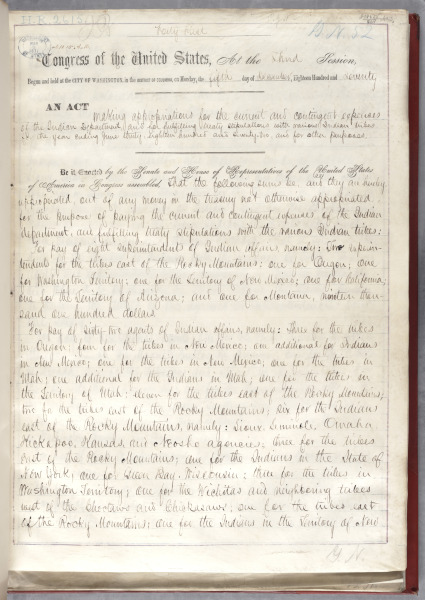 H.R. 2615
Forty first
Congress of the United States, At the Third Session,
Begun and held at the CITY OF WASHINGTON, in the District of Columbia, on Monday, the fifth day of December, Eighteen Hundred and seventy
AN ACT
Making appropriations for the current and contingent expenses
of the Indian Department, and for fulfilling treaty stipulations with various Indian tribes
the year ending June thirty, eighteen hundred and seventy-two, and for other purposes.
Be it Enacted by the Senate and House of Representatives of the United States
of America in Congress assembled, That the following sums be, and they are hereby
appropriated, out of any money in the treasury not otherwise appropriated
for the purpose of paying the current and contingent expenses of the Indian
department, and fulfilling treaty stipulations with the various Indian tribes:
For pay of eight superintendents of Indian affairs, namely: Two superin-
tendents for the tribes east of the Rocky Mountains; one for Oregon; one
for Washington Territory; one for the Territory of New Mexico; one for California;
one for the Territory of Arizona; and one for Montana, nineteen thou-
sand one hundred dollars.
For pay of sixty-two agents of Indian affairs, namely: Three for the tribes
in Oregon; four for the tribes in New Mexico; one additional for Indians
in New Mexico; one for the tribes in New Mexico; one for the tribes in
Utah; one additional for the Indians in Utah; one for the tribes in
the Territory of Utah; eleven for the tribes east of the Rocky Mountains;
two for the tribes east of the Rocky Mountains; six for the Indians
east of the Rocky Mountains, namely: Sioux, Seminole, Omaha,
Kickapoo, Kansas, and Neosho agencies; three for the tribes
east of the Rocky Mountains; one for the Indians in the State of
New York; one for Green Bay, Wisconsin; three for the tribes in
Washington Territory; one for the Wichitas and neighboring tribes
west of the Choctaws and Chickasaws; one for the tribes east
of the Rocky Mountains; one for the Indians in the Territory of New